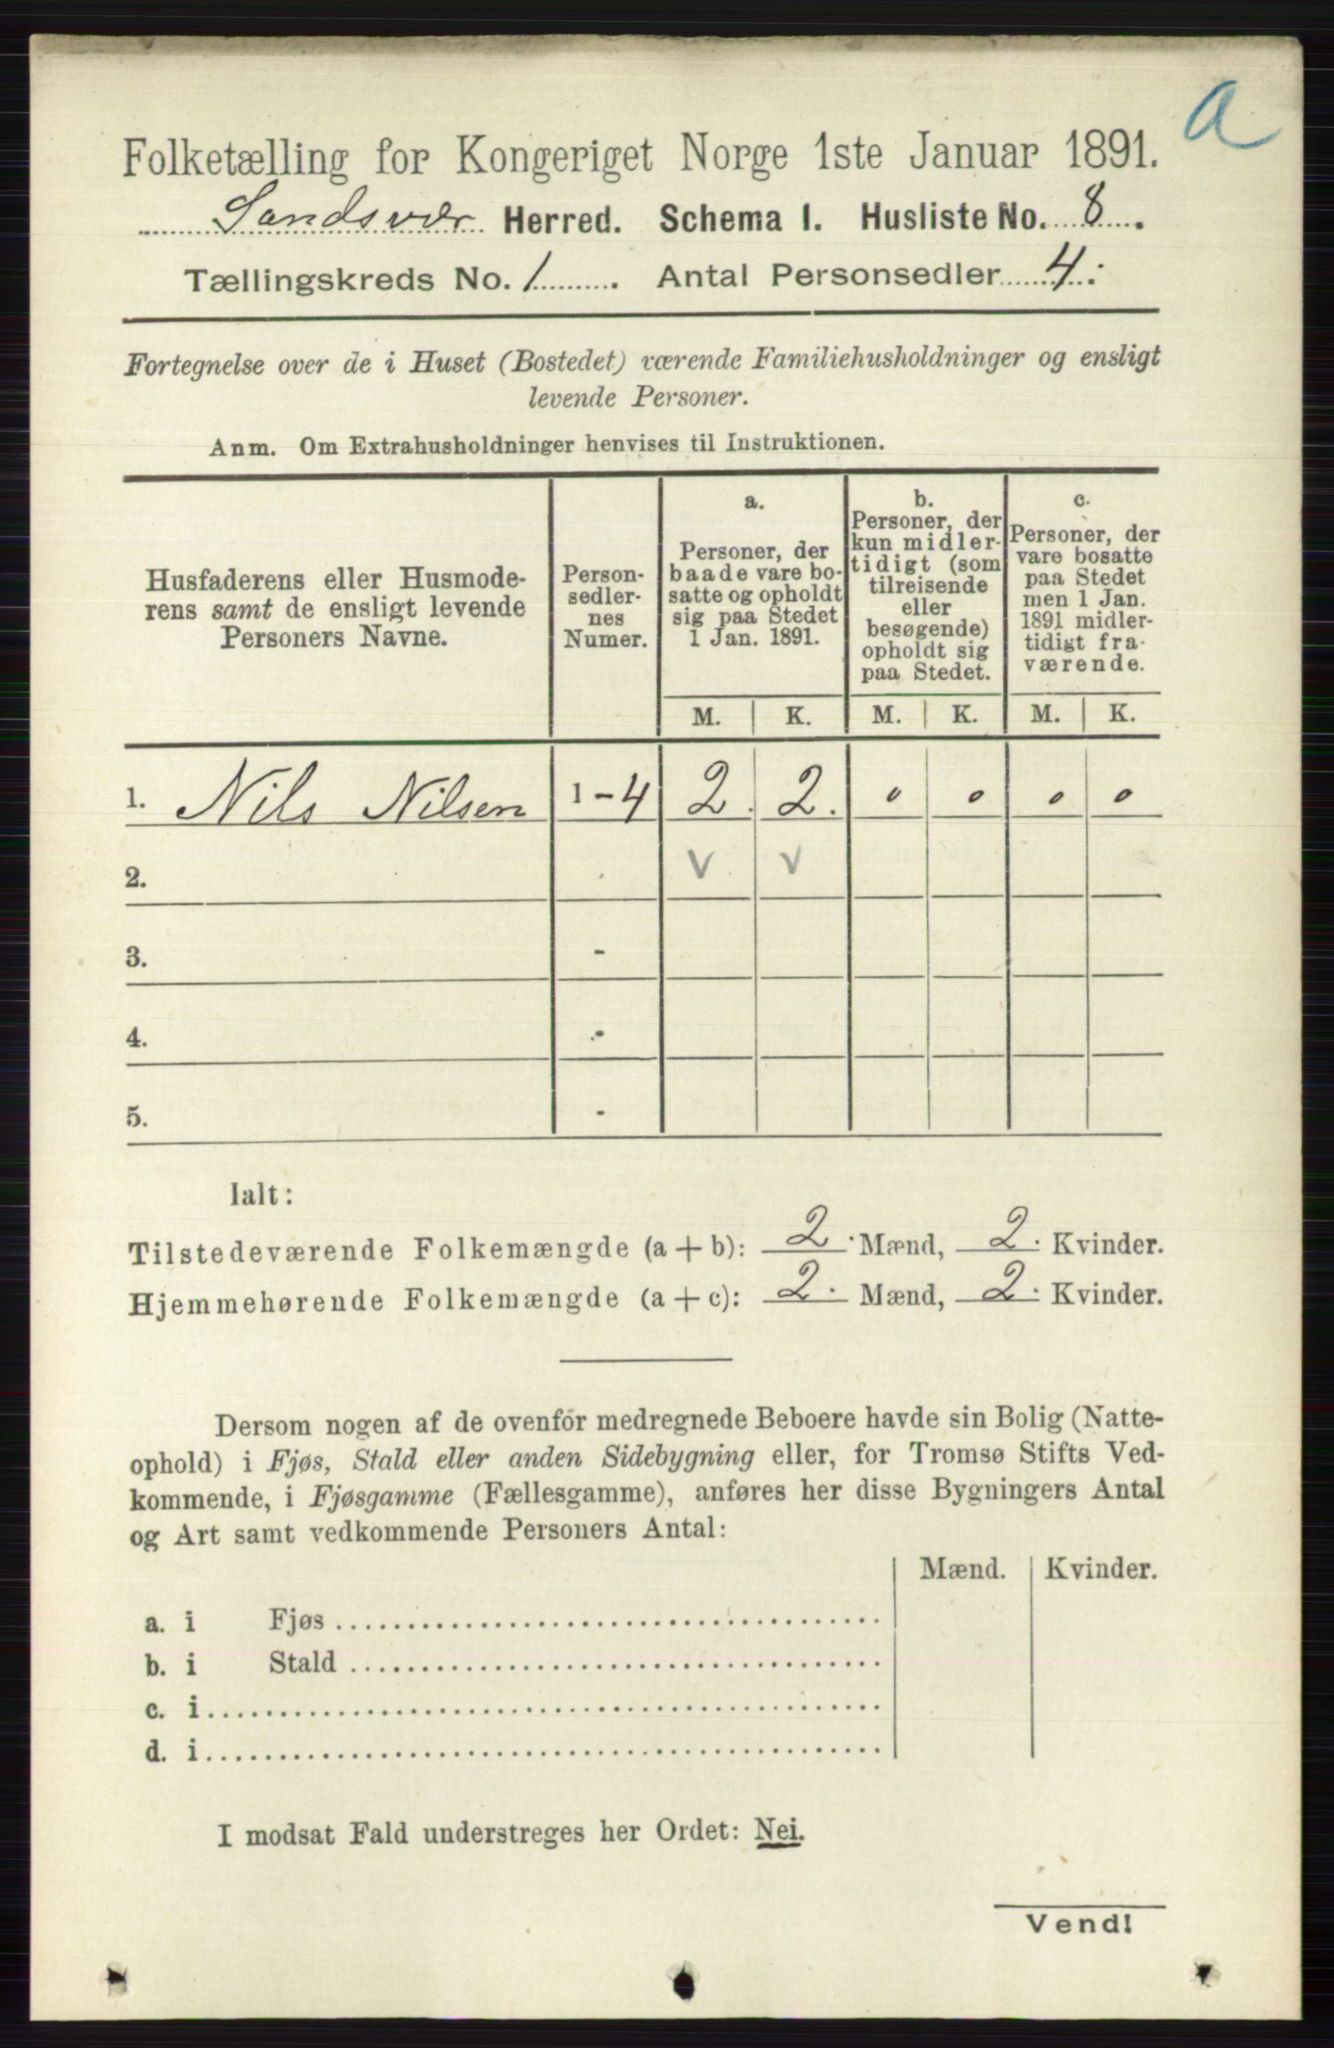 a
Folketælling for Kongeriget Norge 1ste Januar 1891.
Sandsvær Herred. Schema I. Husliste No. 8.
Tællingskreds No. 1. Antal Personsedler 4.
Fortegnelse over de i Huset (Bostedet) værende Familiehusholdninger og ensligt
levende Personer.
Anm. Om Extrahusholdninger henvises til Instruktionen.
Husfaderens eller Husmode-
rens samt de ensligt levende
Personers Navne.
Person-
sedler-
nes
Numer.
a.
Personer, der
baade vare bo-
satte og opholdt
sig paa Stedet
1 Jan. 1891.
b.
Personer, der
kun midler-
tidigt (som
tilreisende
eller
besøgende)
opholdt sig
paa Stedet.
c.
Personer, der
vare bosatte
paa Stedet
men 1 Jan.
1891 midler-
tidigt fra-
værende.
M. K. M. K. M. K.
1. Nils Nilsen 1-4 2. 2. 0 0 0 0
2. v v
3. -
4. -
5. -
Ialt:
Tilstedeværende Folkemængde (a + b): 2. Mænd, 2. Kvinder.
Hjemmehørende Folkemængde (a + c): 2. Mænd, 2. Kvinder.
Dersom nogen af de ovenfor medregnede Beboere havde sin Bolig (Natte-
ophold) i Fjøs, Stald eller anden Sidebygning eller, for Tromsø Stifts Ved-
kommende, i Fjøsgamme (Fællesgamme), anføres her disse Bygningers Antal
og Art samt vedkommende Personers Antal:
Mænd. Kvinder.
a. i Fjøs
b. i Stald
c. i
d. i
I modsat Fald understreges her Ordet: Nei.
Vend!